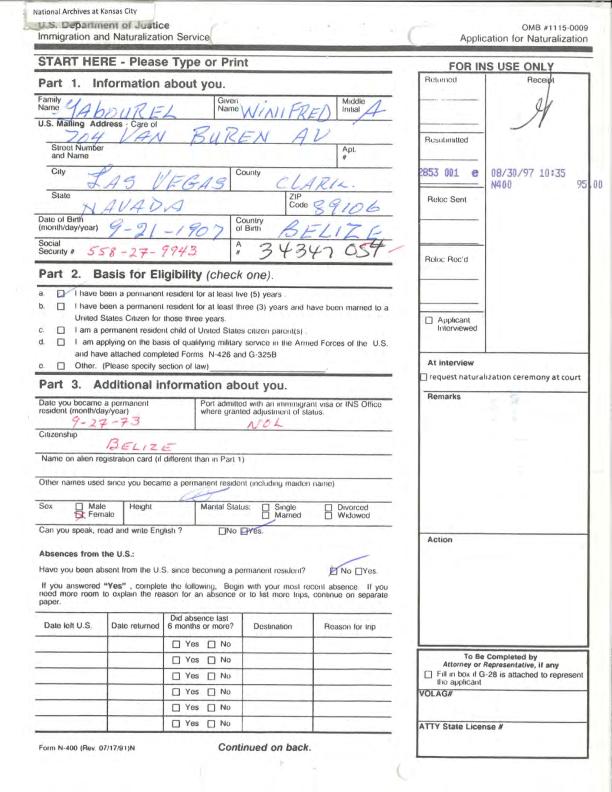 National Archives at Kansas City
U.S. Department of Justice
Immigration and Naturalization Service
OMB #1115-0009
Application for Naturalization
START HERE - Please Type or Print
FOR INS USE ONLY
Part 1. Information about you.
Family Name YABOUREL Given Name WINIFRED Middle Initial A
U.S. Mailing Address - Care of
704 VAN BUREN AV
Street Number and Name
Apt. #
City LAS VEGAS County CLARK.
State NAVADA ZIP Code 89106
Date of Birth (month/day/year) 9-21-1907 Country of Birth BELIZE
Social Security # 558-27-9943 A # 34347 054
Part 2. Basis for Eligibility (check one).
a. I have been a permanent resident for at least five (5) years .
b. I have been a permanent resident for at least three (3) years and have been married to a
United States Citizen for those three years.
c. I am a permanent resident child of United States citizen parent(s) .
d. I am applying on the basis of qualifying military service in the Armed Forces of the U.S.
and have attached completed Forms N-426 and G-325B
e. Other. (Please specify section of law)
Part 3. Additional information about you.
Date you became a permanent resident (month/day/year) 9-27-73
Port admitted with an immigrant visa or INS Office where granted adjustment of status.
NOL
Citizenship
BELIZE
Name on alien registration card (if different than in Part 1)
Other names used since you became a permanent resident (including maiden name)
Sex Male Female Height Marital Status: Single Married Divorced Widowed
Can you speak, read and write English ? No Yes.
Absences from the U.S.:
Have you been absent from the U.S. since becoming a permanent resident? No Yes.
If you answered "Yes" , complete the following, Begin with your most recent absence. If you
need more room to explain the reason for an absence or to list more trips, continue on separate
paper.
Date left U.S. Date returned Did absence last 6 months or more? Destination Reason for trip
Yes No
Yes No
Yes No
Yes No
Yes No
Yes No
Form N-400 (Rev. 07/17/91)N
Continued on back.
Returned
Receipt
Resubmitted
2853 001 e 08/30/97 10:35
N400 95.00
Reloc Sent
Reloc Rec'd
Applicant Interviewed
At interview
request naturalization ceremony at court
Remarks
Action
To Be Completed by
Attorney or Representative, if any
Fill in box if G-28 is attached to represent
the applicant
VOLAG#
ATTY State License #